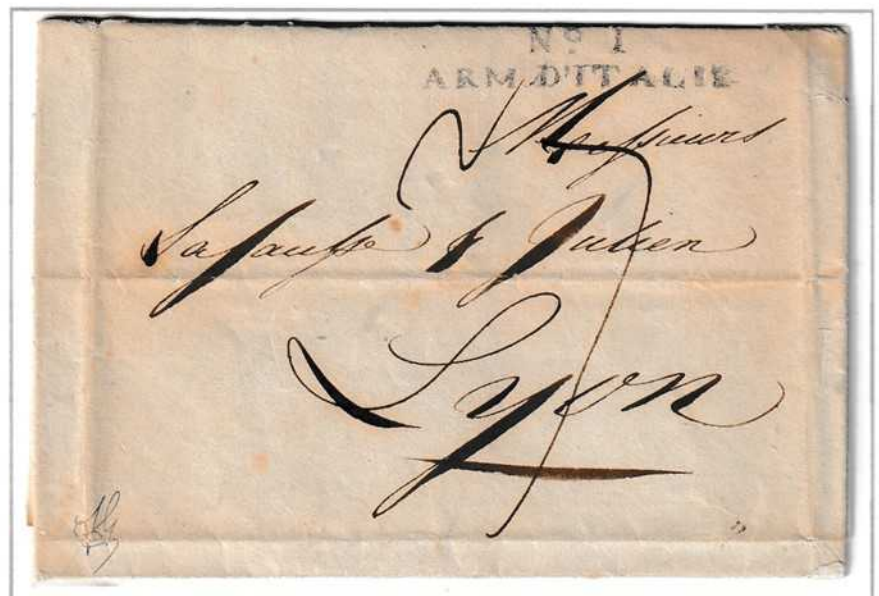 No. 1
ARM. D'ITALIE
Messieurs
& Julien
Lyon